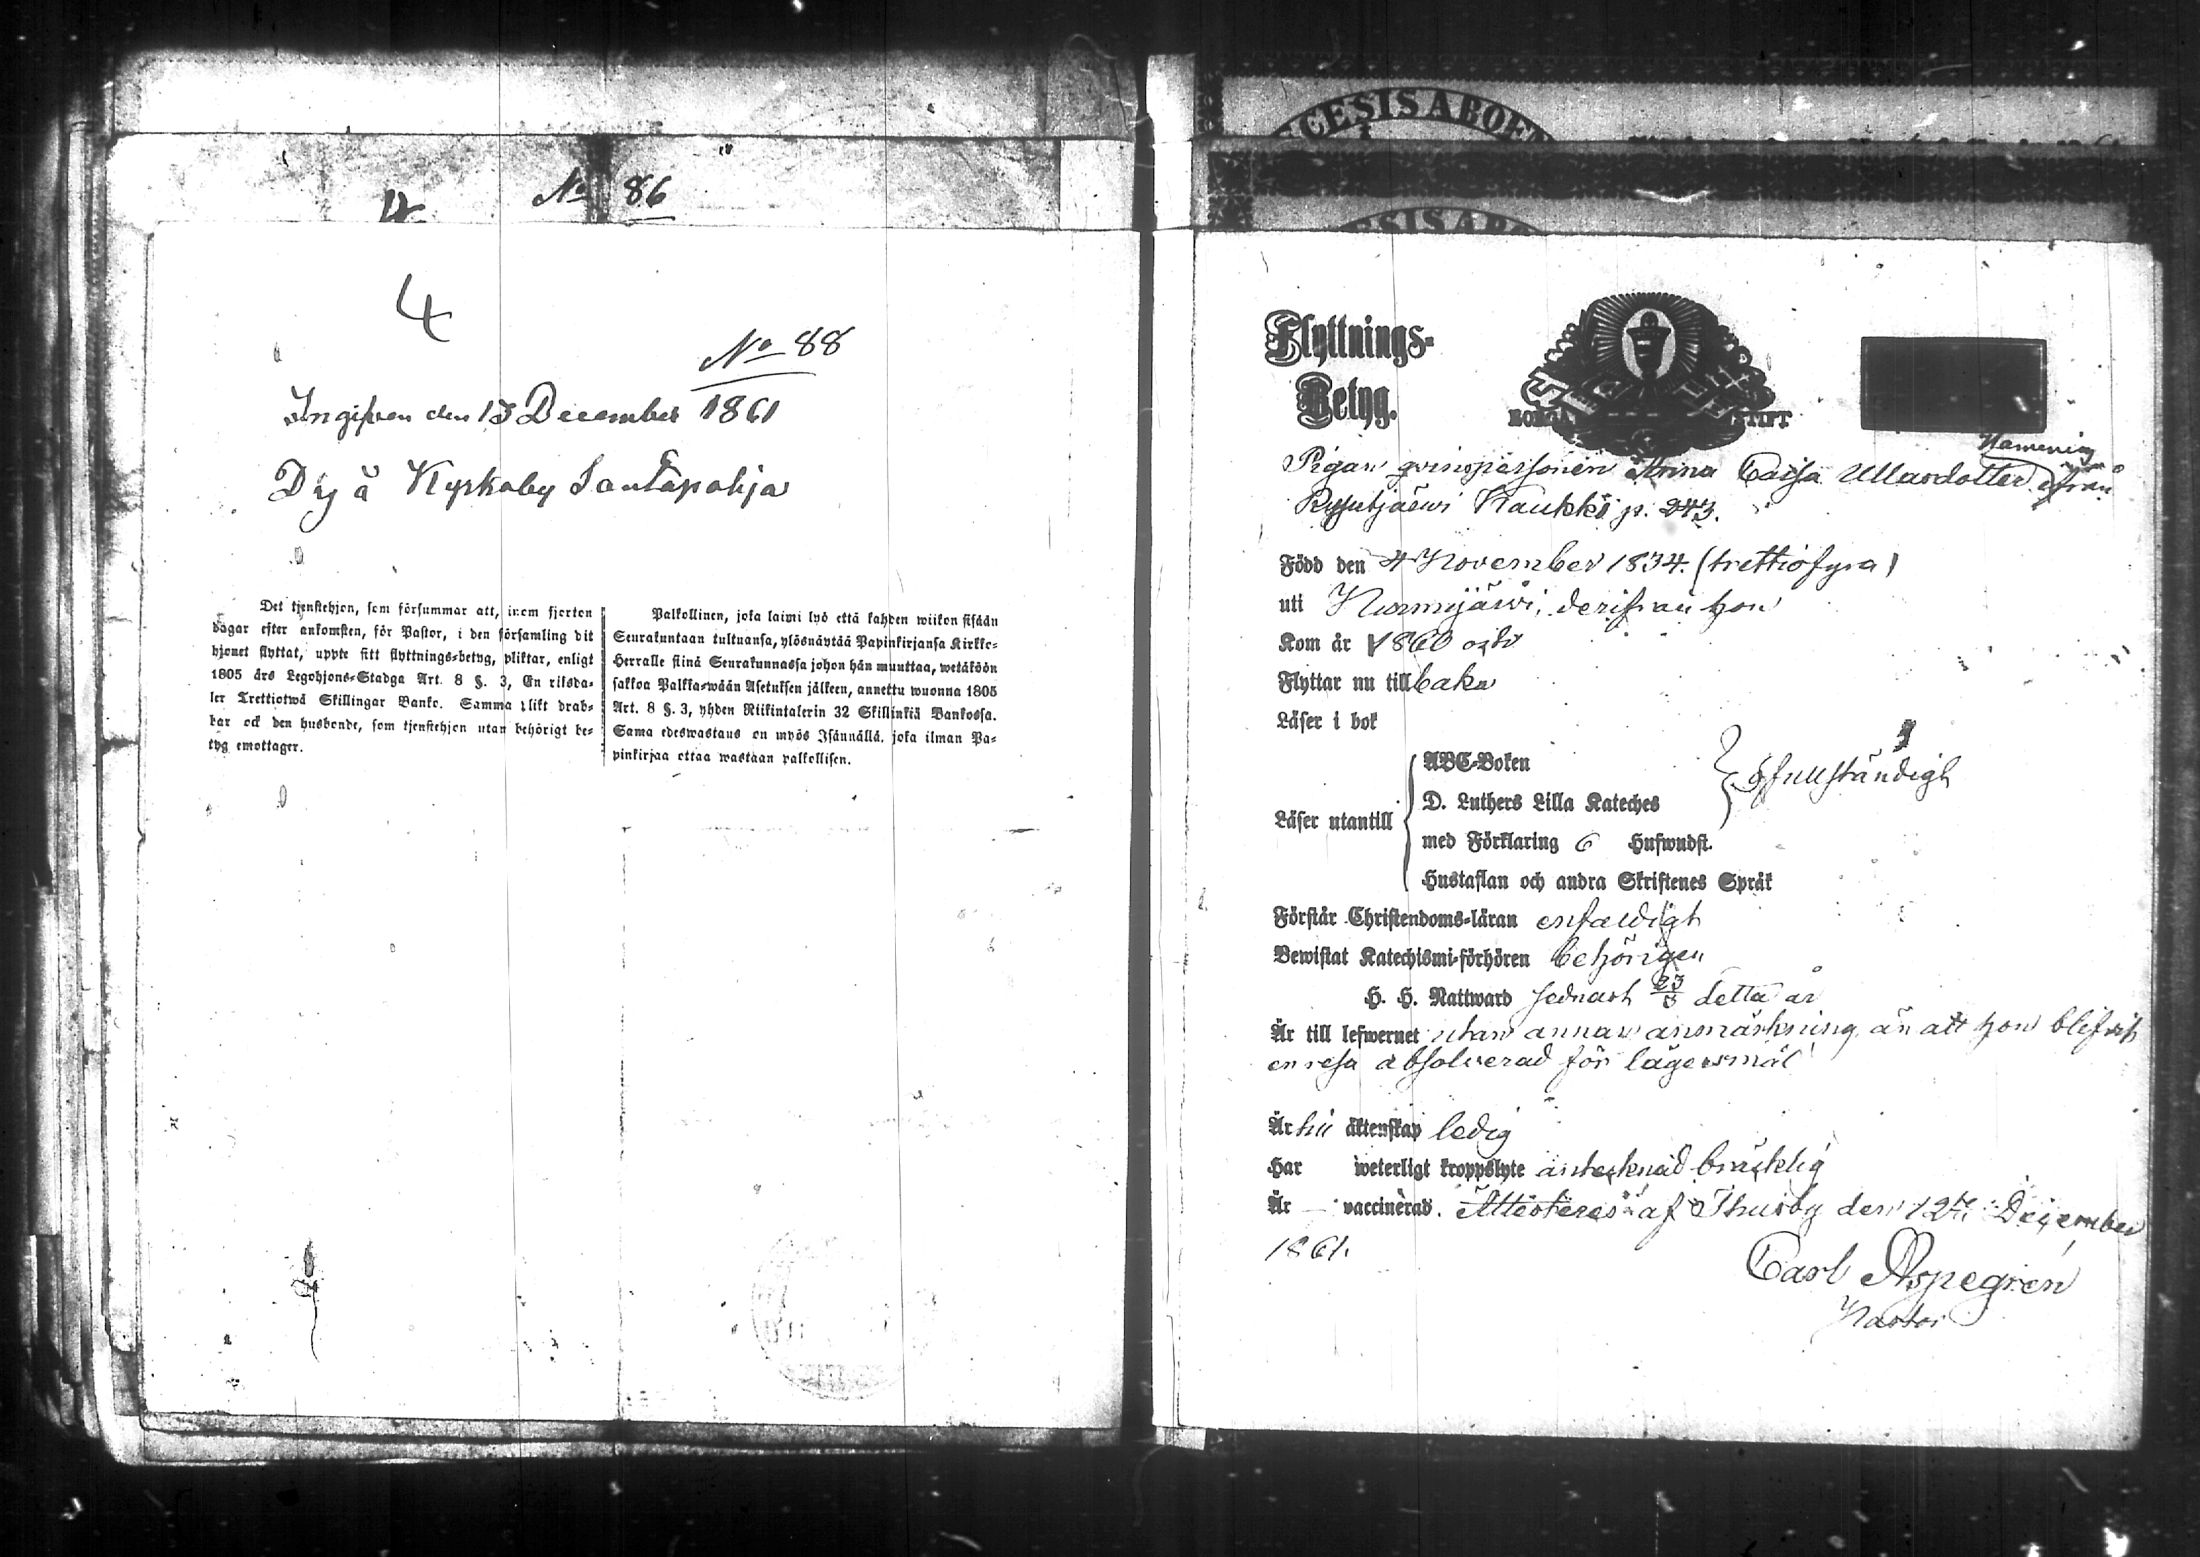 No 86
4
No 88
Ingifven den 13 December 1861
D by å Kyrkoby Santapohja
Det tjenstehjon, som försummar att, inom fjorton
dagar efter ankomsten, för Pastor, i den församling dit
hjonet flyttat, uppte sitt flyttnings-betyg, pliktar, enligt
1805 års Legohjons-Stadga Art. 8 §. 3, En riksda-
ler Trettiotwå Skillingar Banko. Samma plikt drab-
bar ock den husbonde, som tjenstehjon utan behörigt be-
tyg emottager.
Palkollinen, joka laimi lyö että kahden wiikon sisään
Seurakuntaan tultuansa, ylösnäyttää Papinkirjansa Kirkko-
Herralle siinä Seurakunnassa johon hän muuttaa, wetäköön
sakkoa Palkka-wään Asetuksen jälkeen, annettu wuonna 1805
Art. 8 §. 3, yhden Riikintalerin 32 Skillinkiä Bankossa.
Sama edeswastaus on myös Isännällä, joka ilman Pa-
pinkirjaa ottaa wastaan palkollisen.
CESIS ABOEN
ESIS ABO
Flyttnings-
Betyg.
BORGÅ STIFT
Pigan qvinspersonen Anna Caisa Ullasdotter ifrån
Kaukki p. 243.
Född den 4 November 1834. (trettiofyra)
uti Nurmijärvi, derifrån hon
Kom år 1860 och
Flyttar nu tillbaka
Läser i bok
ABC-Boken
D. Luthers Lilla Kateches
ofullständigt
Läser utantill
med Förklaring 6 Hufwudst.
Hustaflan och andra Skriftenes Språk
Förstår Christendoms-läran enfaldigt
Bewistat Katechismi-förhören behörigen
H. H. Nattward sednast 23/3 detta år
Är till lefwernet utan annan anmärkning, än att hon blifvit
en resa absolverad för lägersmål
Är till äktenskap ledig
Har weterligt kroppslyte antecknad bräcklig
Är vaccinerad. Attesteras af Thusby den 12te December
1861.
Carl Aspegrén
Pastor